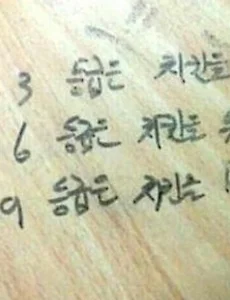 3 등급은 치킨을
6 등급은 치킨을
9 등급은 치킨을